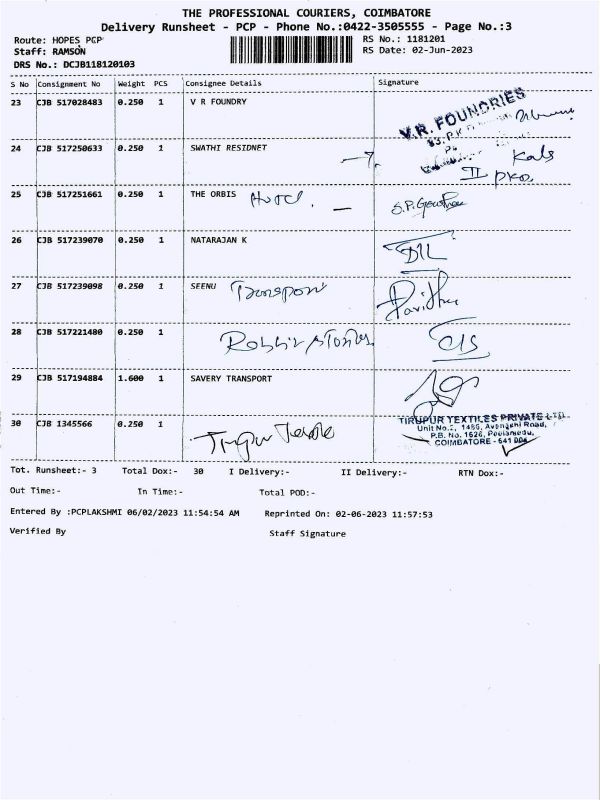 THE PROFESSIONAL COURIERS, COIMBATORE
Delivery Runsheet - PCP - Phone No.:0422-3505555 - Page No.:3
Route: HOPES PCP RS No.: 1181201
Staff: RAMSON RS Date: 02-Jun-2023
DRS No.: DCJB118120103
S No Consignment No Weight PCS Consignee Details Signature
23 CJB 517028483 0.250 1 V R FOUNDRY
V.R. FOUNDRIES
24 CJB 517250633 0.250 1 SWATHI RESIDNET
Kals
II
25 CJB 517251661 0.250 1 THE ORBIS Hotel. -
26 CJB 517239070 0.250 1 NATARAJAN K
27 CJB 517239098 0.250 1 SEENU Transport
28 CJB 517221480 0.250 1
29 CJB 517194884 1.600 1 SAVERY TRANSPORT
30 CJB 1345566 0.250 1 Tirupur Textile
TIRUPUR TEXTILES PRIVATE LTD.
Unit No.2, 1485, Avanashi Road,
P.B. No. 1626, Peelamedu,
COIMBATORE - 641 004
Tot. Runsheet:- 3 Total Dox:- 30 I Delivery:- II Delivery:- RTN Dox:-
Out Time:- In Time:- Total POD:-
Entered By :PCPLAKSHMI 06/02/2023 11:54:54 AM Reprinted On: 02-06-2023 11:57:53
Verified By Staff Signature